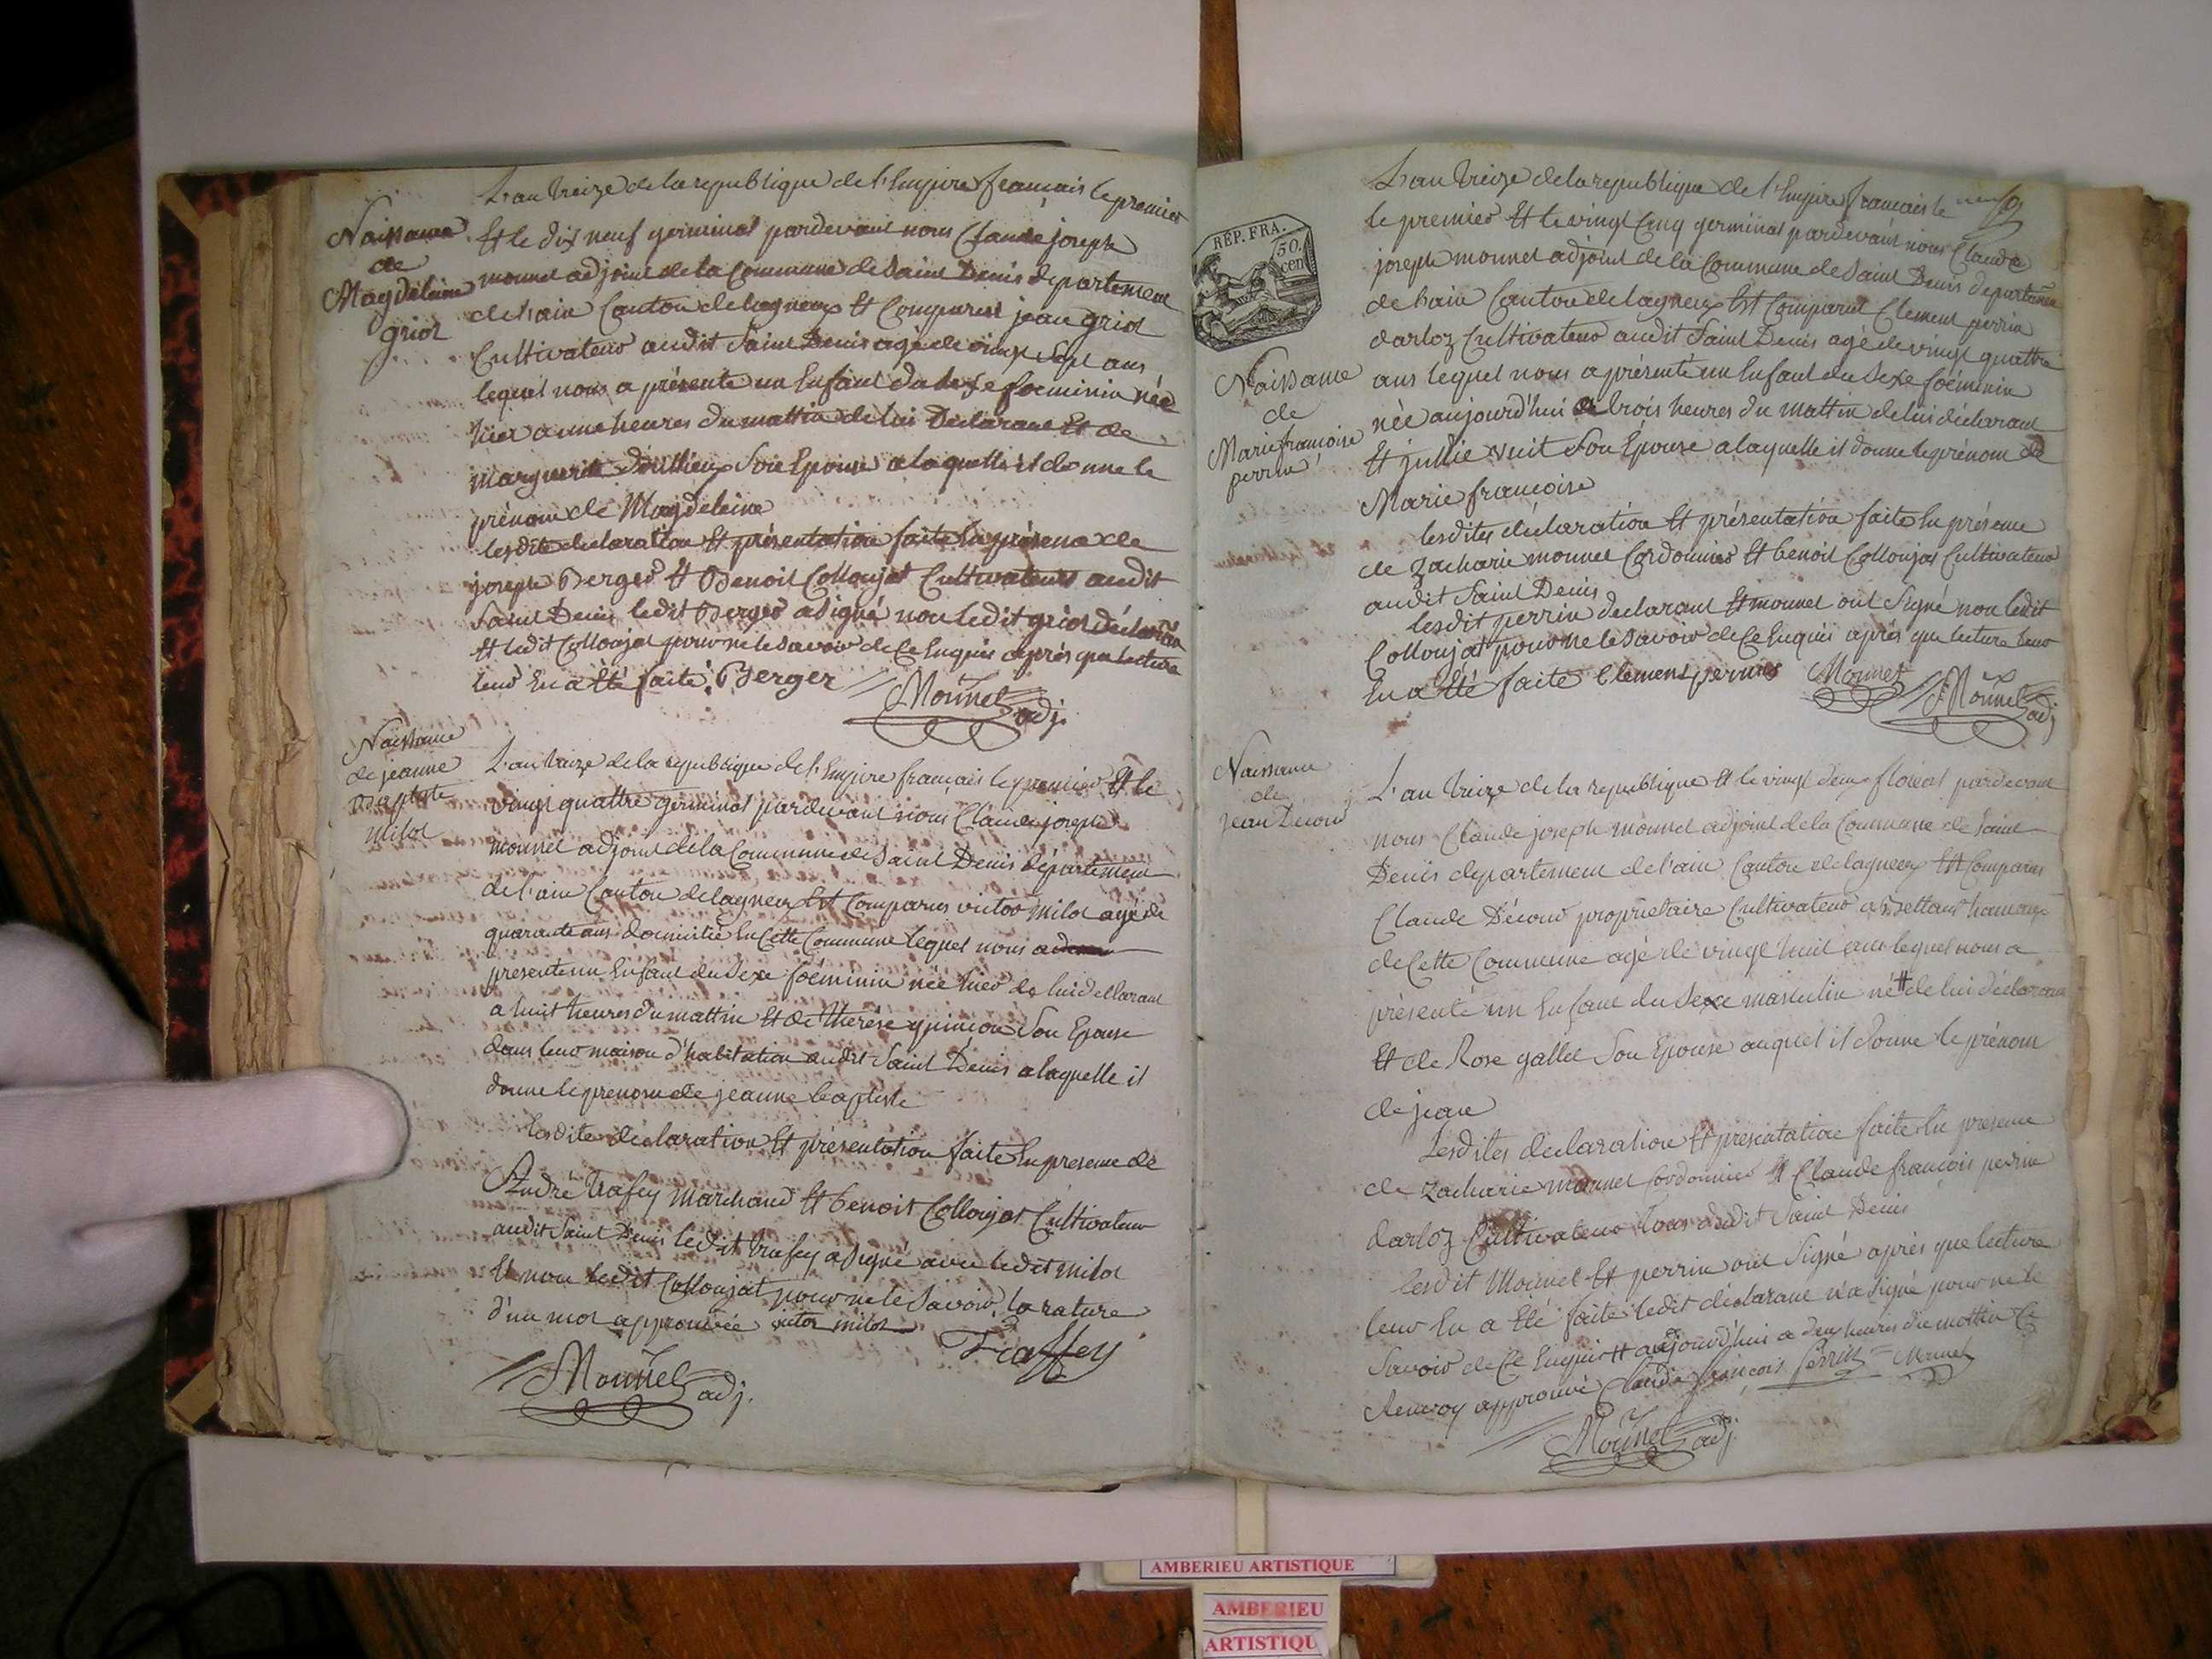 L'an treize de la republique de l'Empire français le premier
Naissance
de
Magdeleine
griot
Et le dix neuf germinal pardevant nous Claude joseph
monnet adjoint de la Commune de Saint Denis departement
de l'ain Canton de lagneux Est Comparut jean griot
Cultivateur audit Saint Denis agé de vingt Sept ans
lequel nous a présenté un Enfant du Sexe foeminin née
hier a une heures du mattin de lui Declarant Et de
marguerite Son Epouse a laquelle il donne le
prénom de Magdeleine
lesdite declaration Et présentation faite En présence de
joseph Berger Et Benoit Collonjat Cultivateurs audit
Saint Denis ledit Berger a signé non ledit griot déclarant
Et ledit Collonjat pour ne le savoir de Ce Enquis après que lecture
leur En a Eté faite. Berger
Monnet adj.
Naissance
de jeanne
Baptiste
milot
L'an treize de la republique de l'Empire français le premier Et le
vingt quattre germinal pardevant nous Claude joseph
monnet adjoint de la Commune de Saint Denis département
de l'ain Canton de lagneux Est Comparus victor milot agé de
quarante ans domicilié En Cette Commune lequel nous a
presenté un Enfant du Sexe foeminin née hier de lui déclarant
a huit heures du mattin Et de Therése Son Epouse
dans leur maison d'habitation audit Saint Denis a laquelle il
donne le prenom de jeanne baptiste
lesdite declaration Et présentation faite En presence de
André trafey marchand Et benoit Collonjat Cultivateur
audit Saint Denis ledit trafey a signé avec ledit milot
Et non ledit Collonjat pour ne le Savoir, la rature
d'un mot approuvée victor milot
Traffey
Monnet adj.
L'an treize de la republique de l'Empire français le
REP. FRA.
50.
cen
Naissance
de
Marie françoise
perrin
le premier Et le vingt Cinq germinal pardevant nous Claude
joseph monnet adjoint de la Commune de Saint Denis departement
de l'ain Canton de lagneux Est Comparut Clement perrin
darloz Cultivateur audit Saint Denis agé de vingt quattre
ans lequel nous a présenté un Enfant du Sexe foéminin
née aujourd'hui a trois heures du mattin de lui déclarant
Et jullie vuit Son Epouse a laquelle il donne le prénom de
Marie françoise
lesdites déclaration Et présentation faite En présence
de zacharie monnet Cordonnier Et benoit Collonjat Cultivateur
audit Saint Denis
lesdit perrin declarant Et monnet ont Signé non ledit
Collonjat pour ne le Savoir de Ce Enquis après que lecture leur
En a Eté faite Clement perrin Monnet
Monnet adj
Naissance
de
jean Decour
L'an treize de la republique Et le vingt deux floréal pardevant
nous Claude joseph monnet adjoint de la Commune de Saint
Denis departement de l'ain Canton de lagneux Est Comparus
Claude Décour proprietaire Cultivateur a Bettant hameau
de Cette Commune agé de vingt huit ans lequel nous a
présenté un Enfant du Sexe masculin né # de lui déclarant
Et de Rose gallet Son Epouse auquel il donne le prénom
de jean
Lesdites declaration Et présentation faite En presence
de zacharie monnet Cordonnier Et Claude françois perrin
darloz Cultivateur tous dudit Saint Denis
lesdit Monnet Et perrin ont Signé après que lecture
leur En a Eté faite ledit déclarant n'a Signé pour ne le
Savoir de Ce Enquis # aujourd'hui a deux heures du mattin Ce
Renvoy approuvé Claude françois perrin Monnet
Monnet adj.
AMBERIEU ARTISTIQUE
AMBERIEU
ARTISTIQU